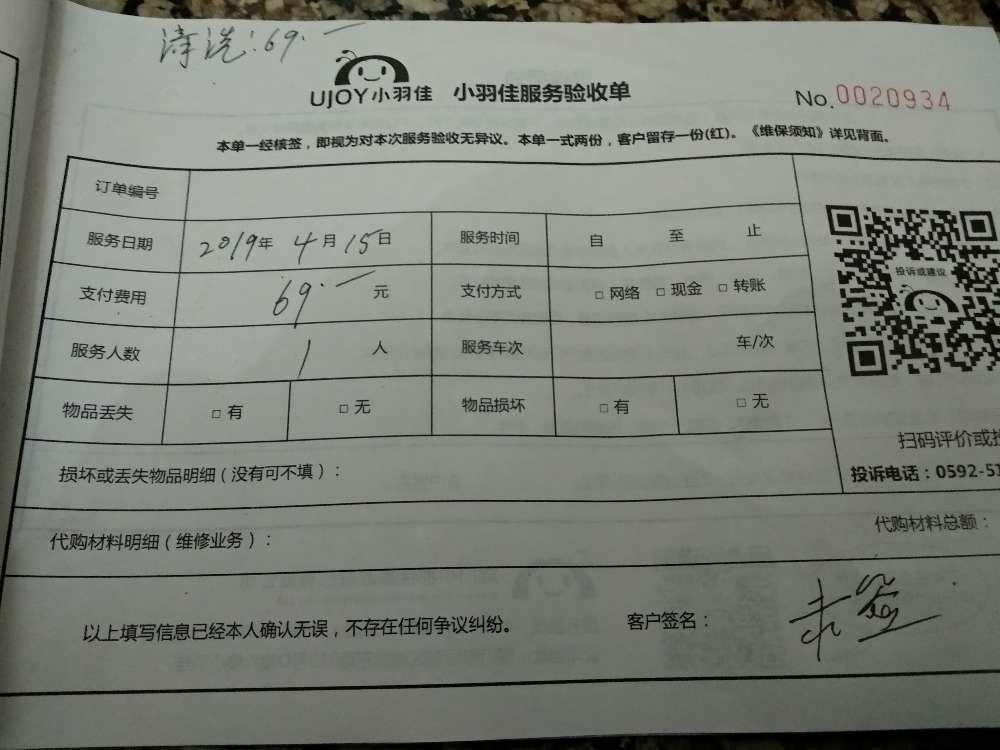 清洗:69.一
UJOY小羽佳 小羽佳服务验收单
No.0020934
本单一经核签，即视为对本次服务验收无异议。本单一式两份，客户留存一份(红)。《维保须知》详见背面。
订单编号
服务日期 2019年 4月 15日 服务时间 自 至 止
投诉或建议
支付费用 69.一 元 支付方式 □网络 □现金 □转账
服务人数 1 人 服务车次 车/次
物品丢失 □有 □无 物品损坏 □有 □无
扫码评价或
损坏或丢失物品明细(没有可不填)：
投诉电话：0592-51
代购材料明细(维修业务)：
代购材料总额：
以上填写信息已经本人确认无误，不存在任何争议纠纷。
客户签名： 未签